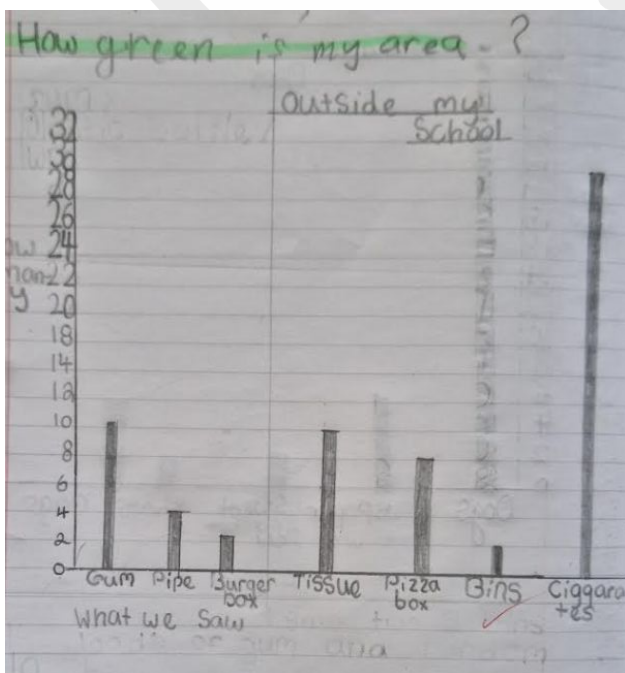 How green is my area - ?
Outside my
School
32
30
28
26
24
22
20
18
14
12
10
8
6
4
2
0
Gum Pipe Burger box Tissue Pizza box Bins Ciggarates
What we saw